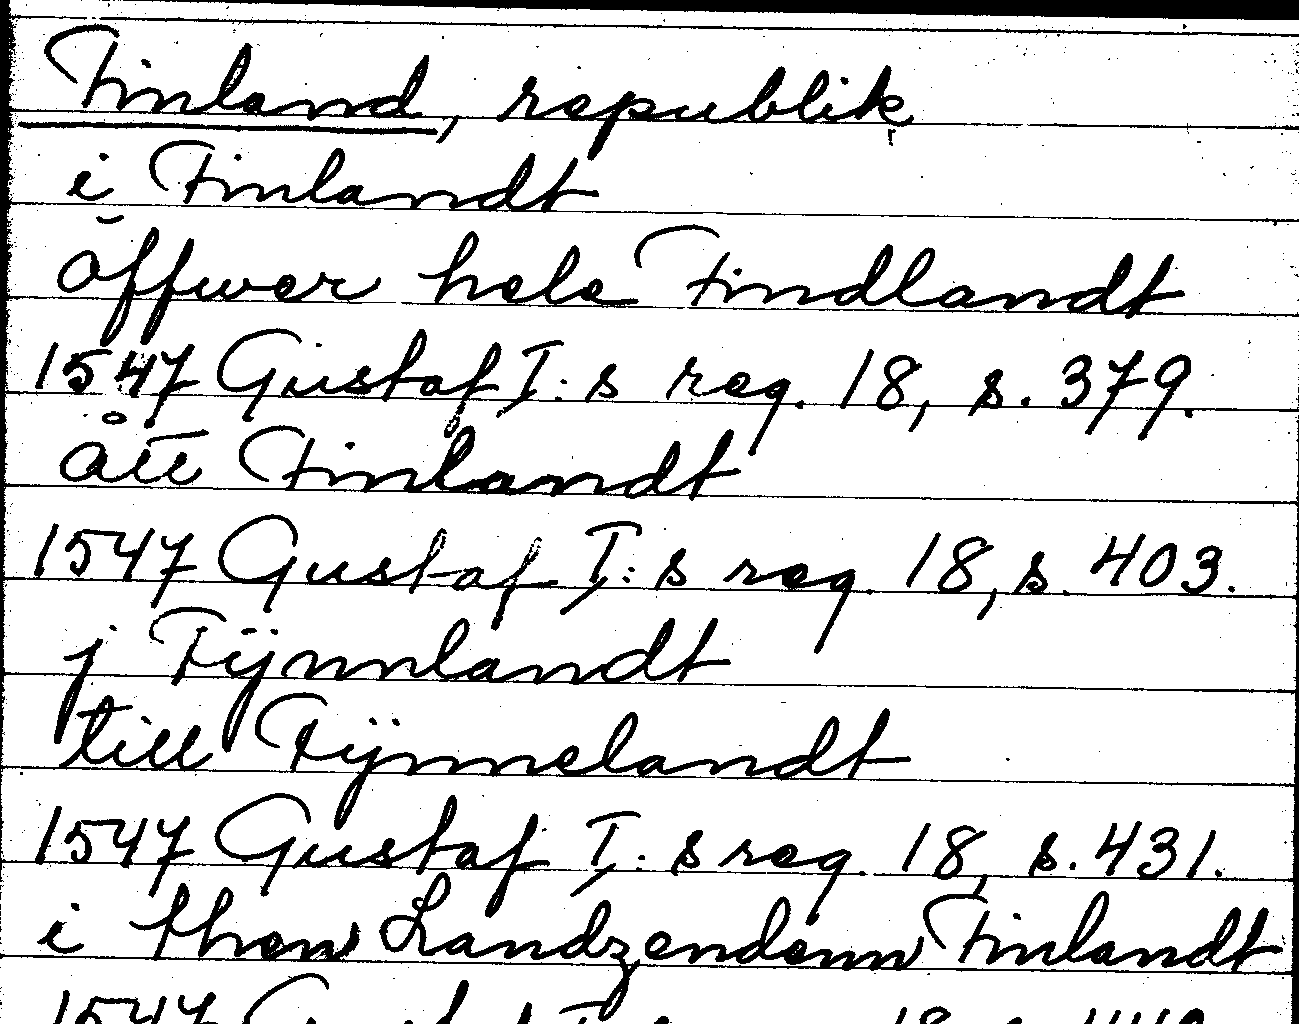 Finland, republik
i Finlandt
öffwer hele Findlandt
1547 Gustaf I:s reg. 18, s. 379.
ått Finlandt
1547 Gustaf I:s reg. 18, s. 403.
j Fijnnlandt
till Fijnnelandt
1547 Gustaf I:s reg. 18, s. 431.
i then Landzendenn Finlandt
1547 Gustaf I:s